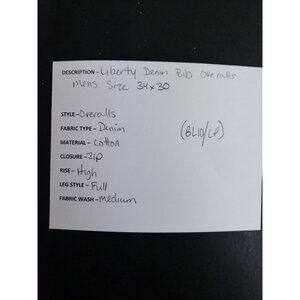 DESCRIPTION - Liberty Denim Bib overalls
mens Size 34x30
STYLE - Overalls
FABRIC TYPE - Denim
(BL10/LP)
MATERIAL - Cotton
CLOSURE - Zip
RISE - High
LEG STYLE - Full
FABRIC WASH - medium